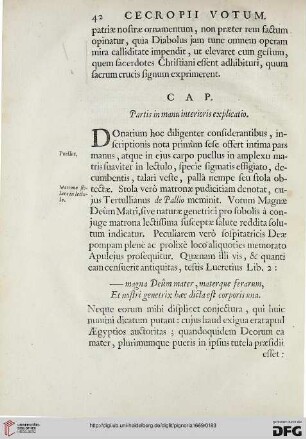 42 CECROPII VOTUM.
patriæ nostræ ornamentum, non præter rem factum
opinatur, quia Diabolus jam tunc omnem operam
mira calliditate impendit, ut elevaret cum gestum,
quem sacerdotes Christiani essent adhibituri, quum
sacrum crucis signum exprimerent.
CAP.
Partis in manu interioris explicatio.
DOnatium hoc diligenter considerantibus, in-
scriptionis nota primùm sese offert intima pars
manus, atque in ejus carpo puellus in amplexu ma
tris suaviter in lectulo, specie sigmatis effigiato, de-
cumbentis, talari veste, pallâ nempe seu stola ob-
tectæ. Stola verò matronæ pudicitiam denotat, cu-
jus Tertullianus de Pallio meminit. Votum Magnæ
Deûm Matri, sive naturæ genetrici pro sobolis à con-
juge matrona lectissima susceptæ salute reddita solu-
tum indicatur. Peculiarem verò sospitatricis Deæ
pompam plenè ac prolixè loco aliquoties memorato
Apulejus prosequitur. Quænam illi vis, & quanti
eam censuerit antiquitas, testis Lucretius Lib. 2:
— magna Deûm mater, materque ferarum,
Et nostri genetrix hæc dicta est corporis una.
Neque eorum mihi displicet conjectura, qui huic
numini dicatum putant: cujus haud exigua erat apud
Ægyptios auctoritas; quandoquidem Deorum ea
mater, plurimumque pueris in ipsius tutela præsidii
esset:
http://digi.ub.uni-heidelberg.de/diglit/pignoria1669/0183
UNIVERSITÄTS-
BIBLIOTHEK
HEIDELBERG
Gefördert durch die
DFG